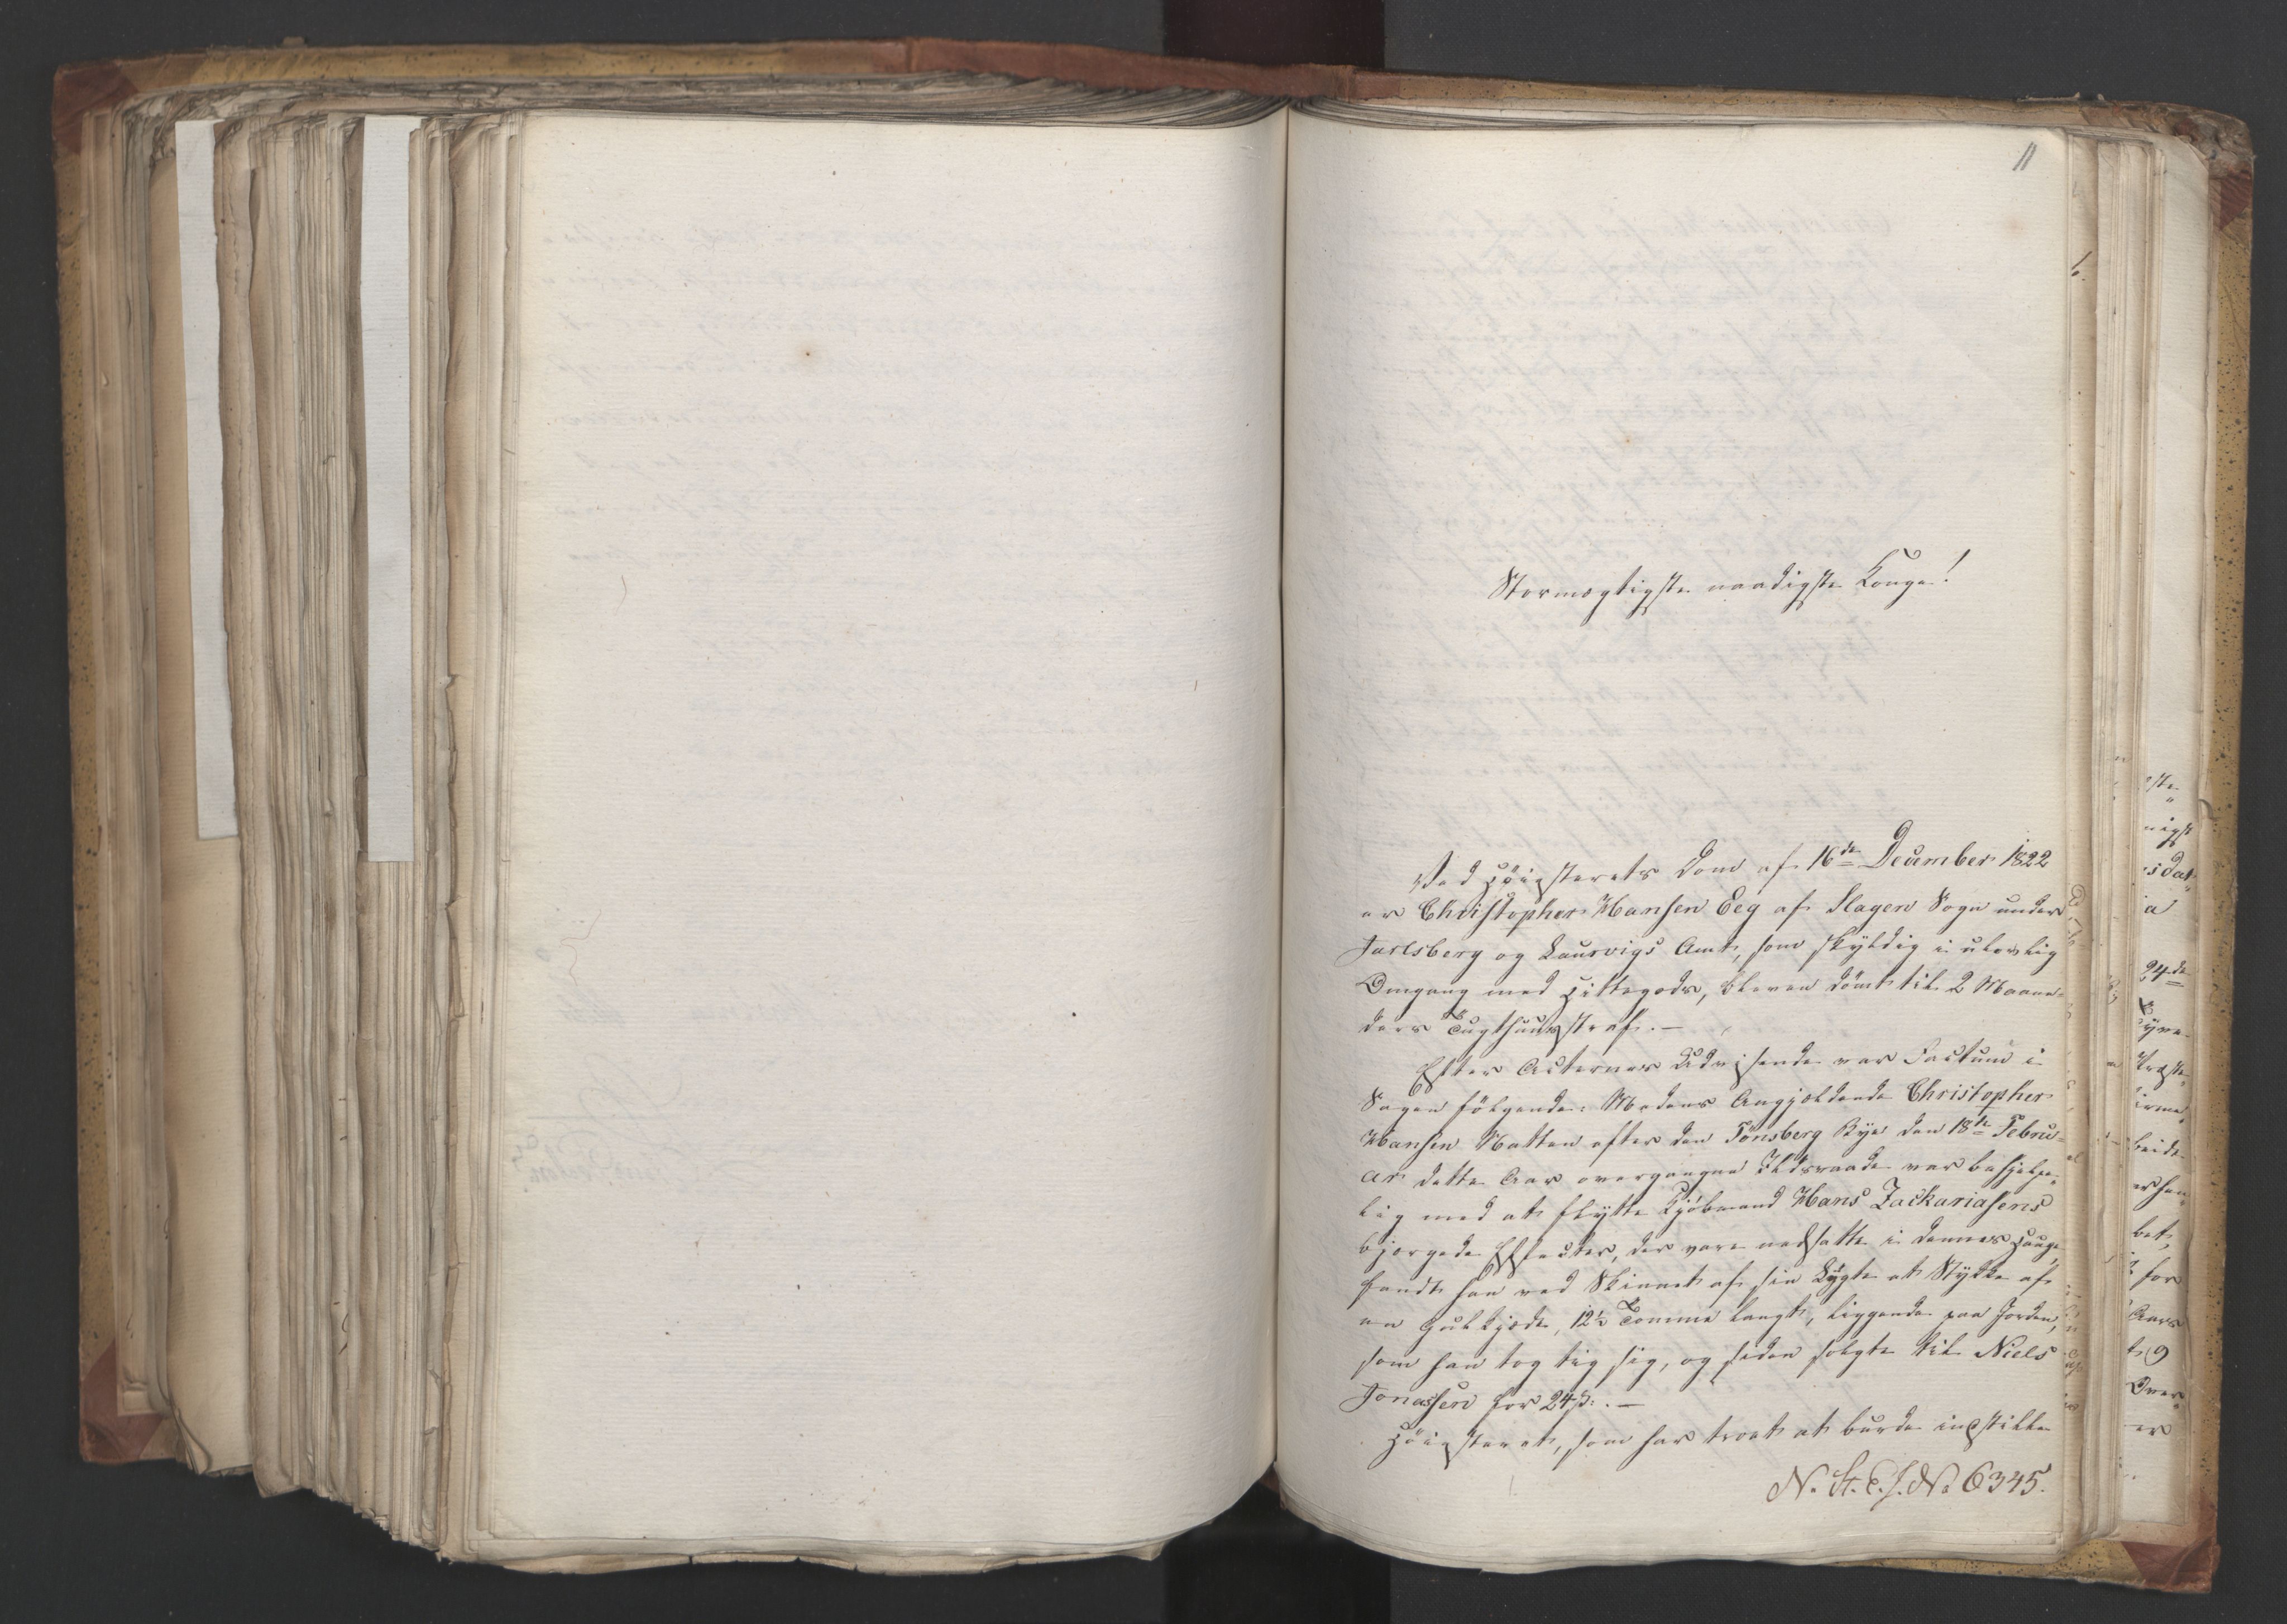 11
Stormægtigste naadigste Konge!
Ved Høiesterets Dom af 16de December 1822
er Christopher Hansen Eeg af Slagen Sogn under
Jarlsberg og Laurvigs Amt, som skyldig i ulovlig
Omgang med Hittegods, bleven dömt til 2 Maane-
ders Tugthuusstraf. —
Efter Acternes Udvisende var Factum i
Sagen fölgende: Medens Angjældende Christopher
Hansen Natten efter den Tönsberg Bye den 18de Febru-
ar dette Aar overgangne Ildsvaade var behjelpe-
lig med at flytte Kjöbmand Hans Zackariasens
bjergede Effecter, der vare nedsatte i dennes Hauge,
fandt han ved Skinnet af sin Lygte et Stykke af
en Guldkjæde, 12½ Tomme langt, liggende paa Jorden,
som han tog til sig, og siden solgte til Niels
Jonassen for 24 ß. —
Höiesteret, som har troet at burde indstille
N. St. E. J. No 6345.